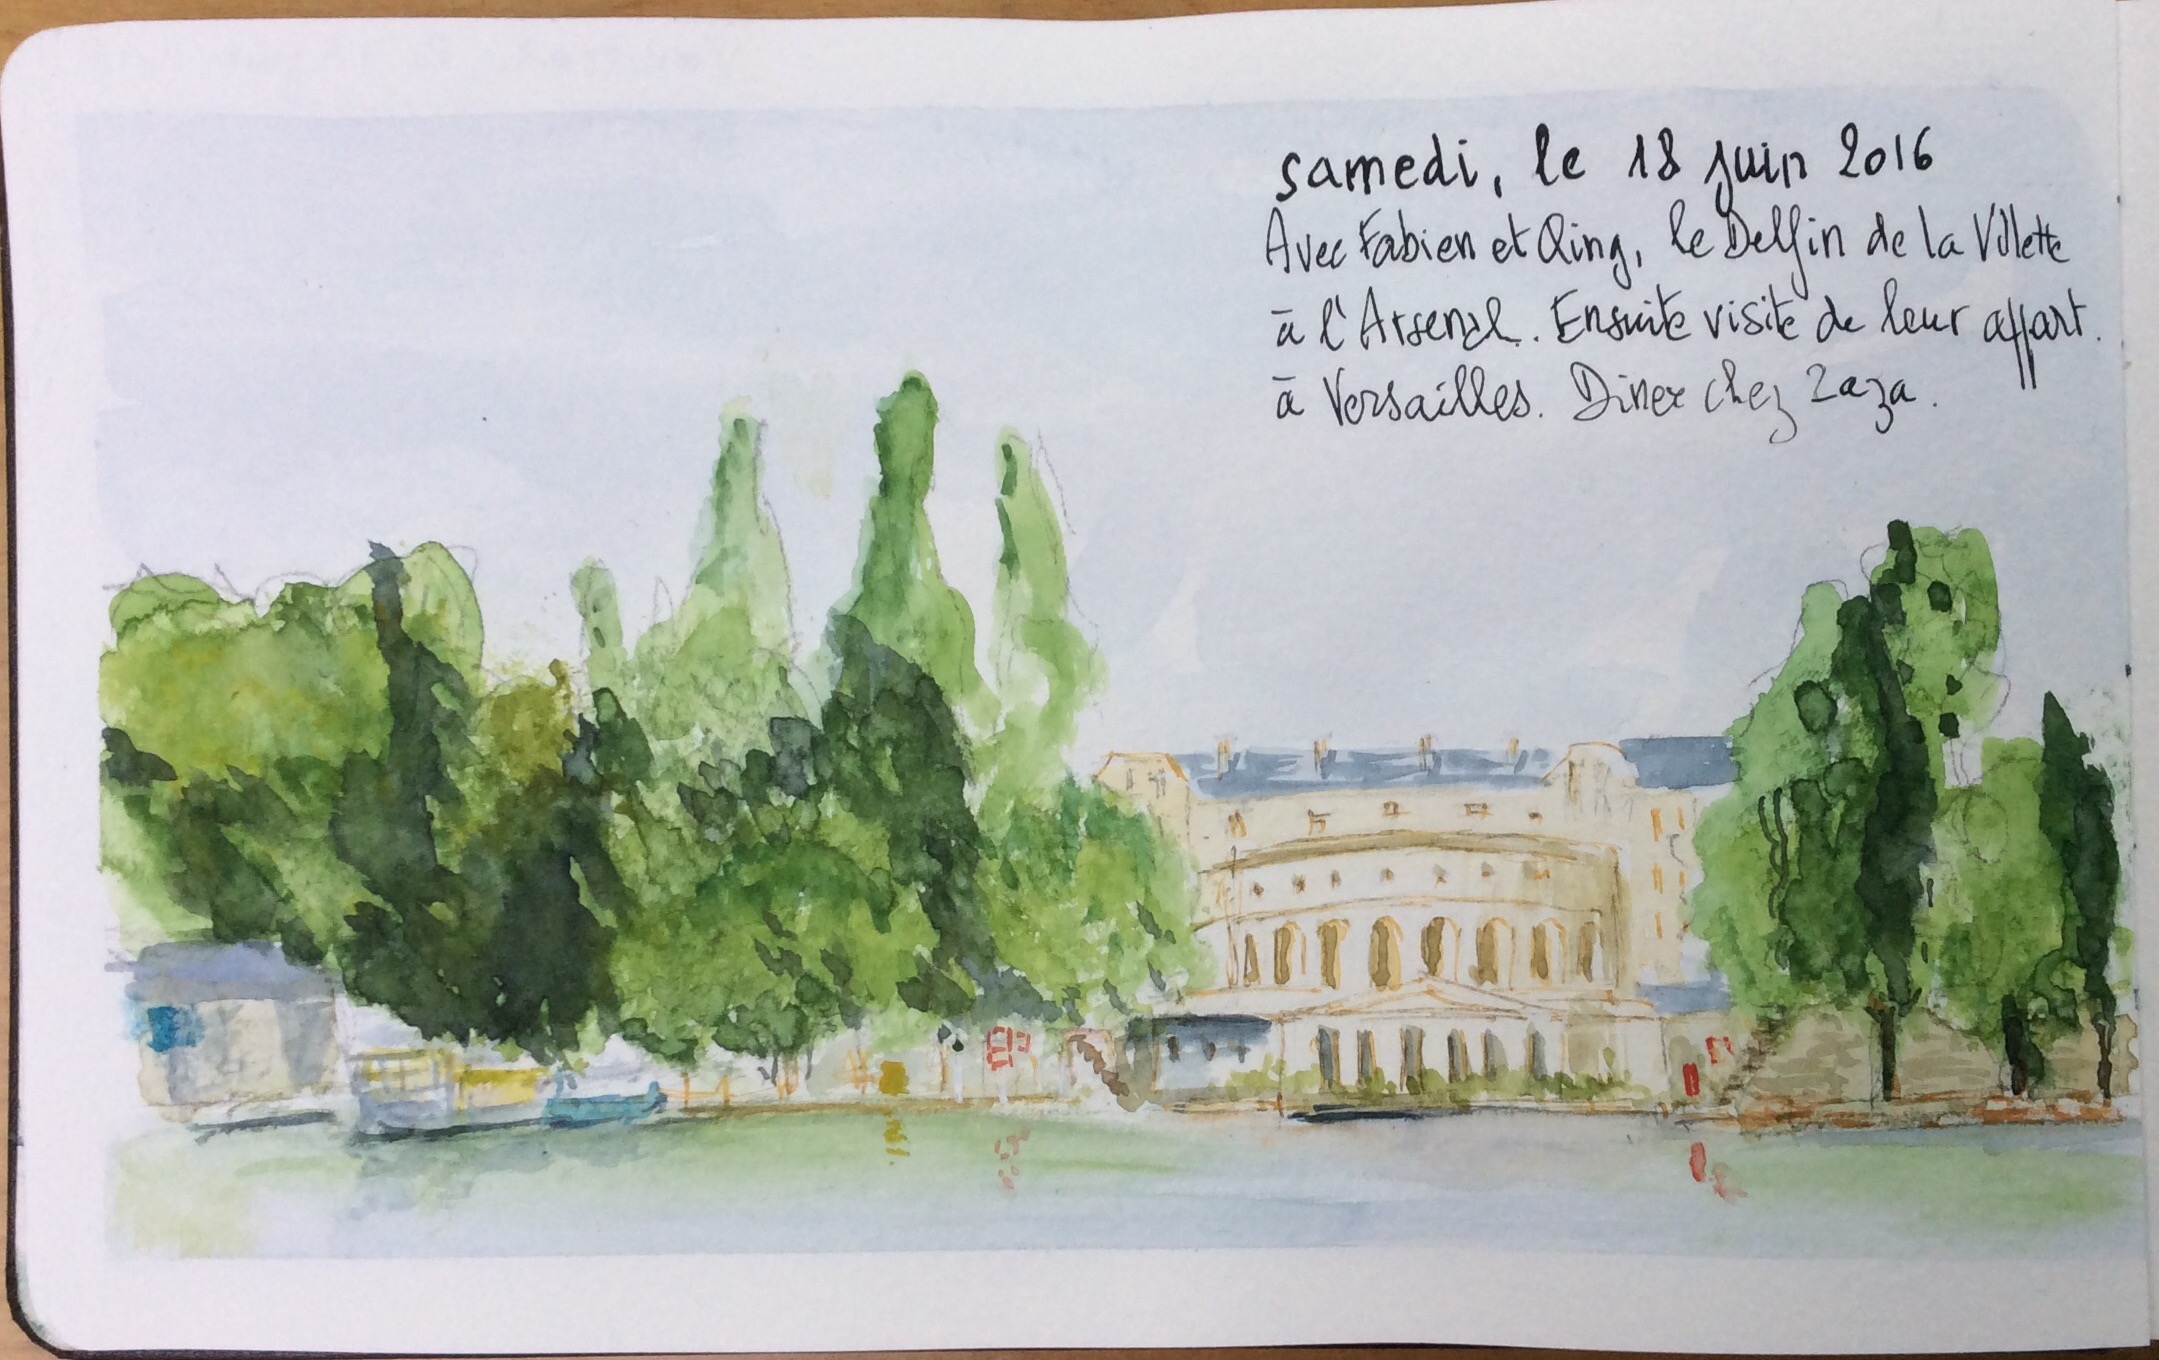 samedi, le 18 juin 2016
Avec Fabien et Qing, le Delfin de la Villette
à l'Arsenal. Ensuite visite de leur appart.
à Versailles. Diner chez Zaza.